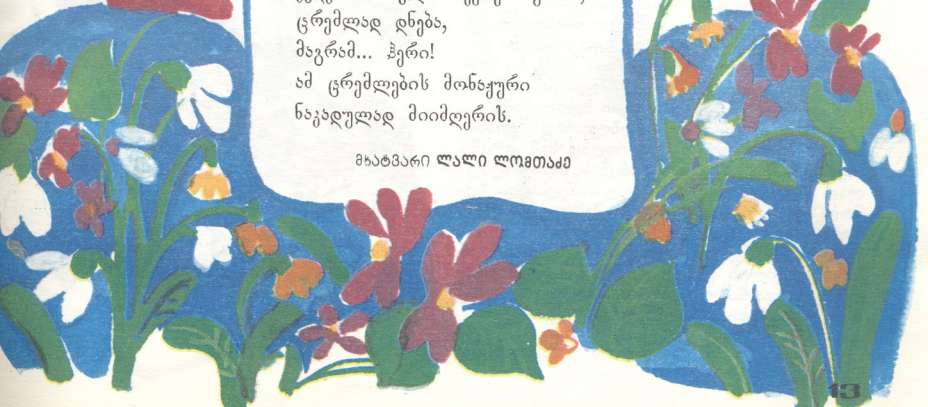 ცრემლად დნება,
მაგრამ... ჰერი!
ამ ცრემლების მონაჟური
ნაკადულად მიიმღერის.
მხატვარი ლალი ლომთაძე
13